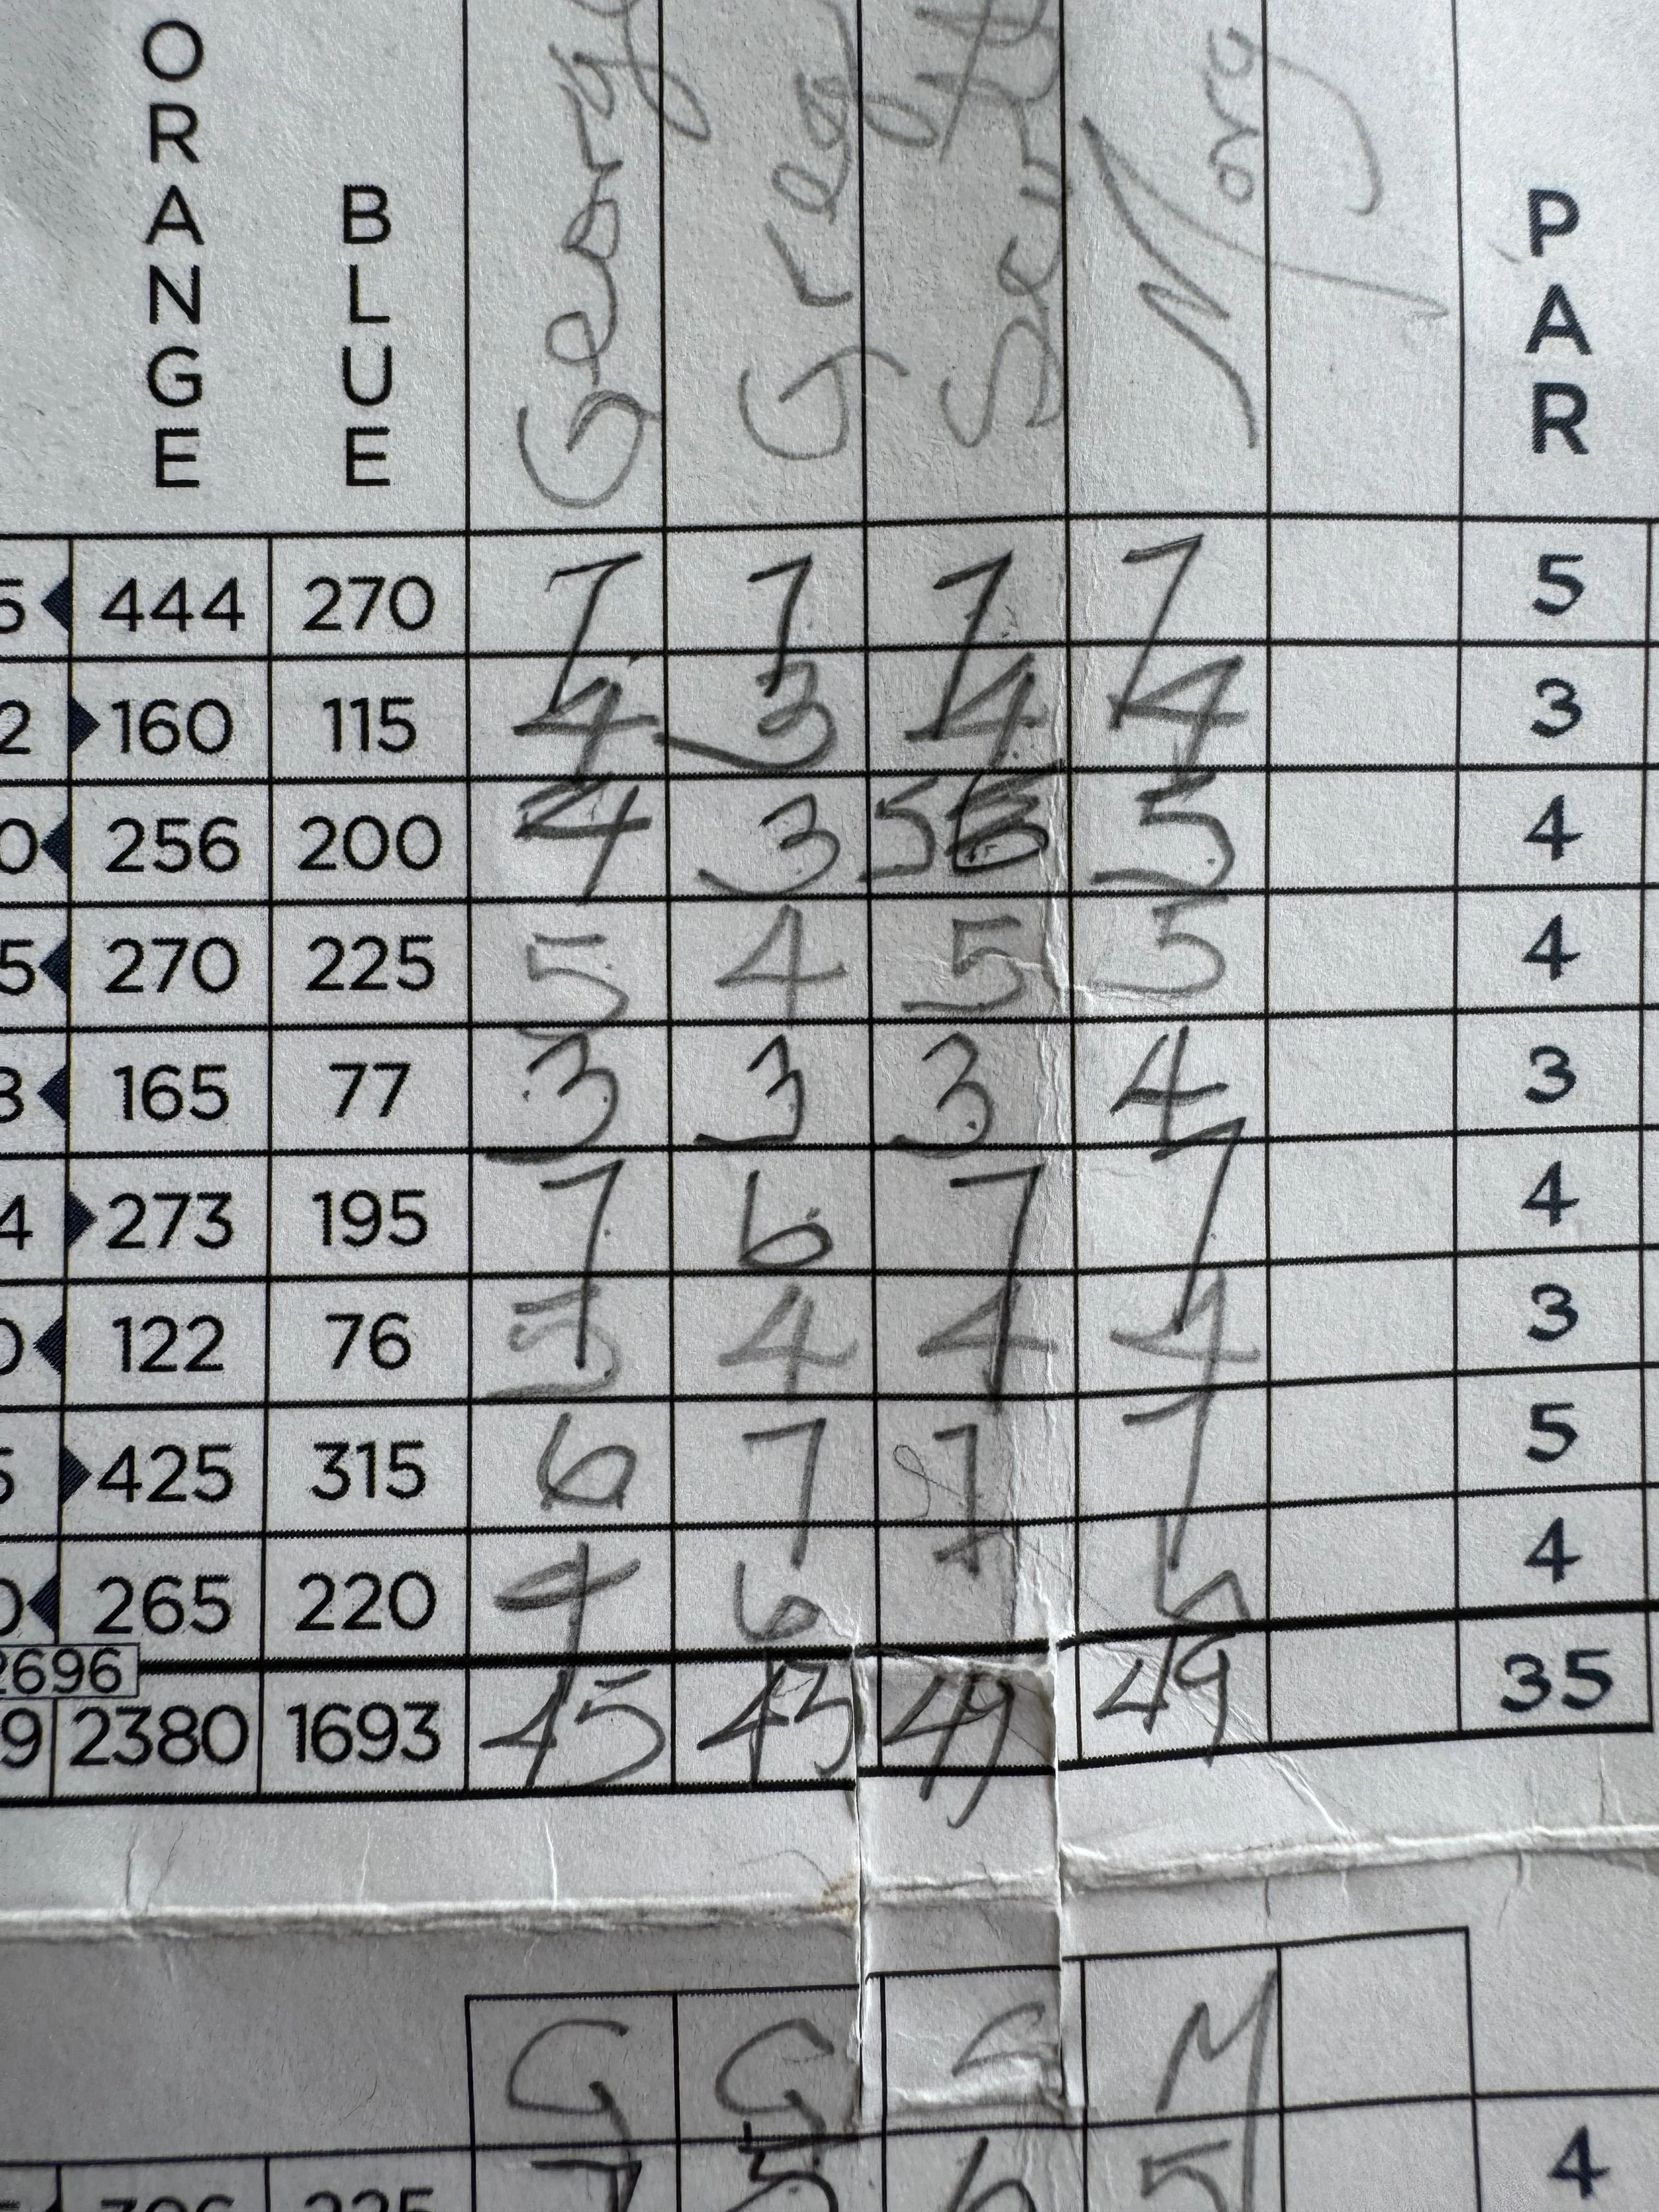 ORANGE BLUE George Greg Scup Morg PAR
5 444 270 7 7 7 7 5
2 160 115 4 3 4 4 3
0 256 200 4 3 5 5 4
5 270 225 5 4 5 5 4
3 165 77 3 3 3 4 3
4 273 195 7 6 7 7 4
0 122 76 5 4 4 4 3
5 425 315 6 7 7 7 5
0 265 220 4 6 5 4
2696
9 2380 1693 45 43 49 49 35
G G S M
306 225 7 5 6 5 4